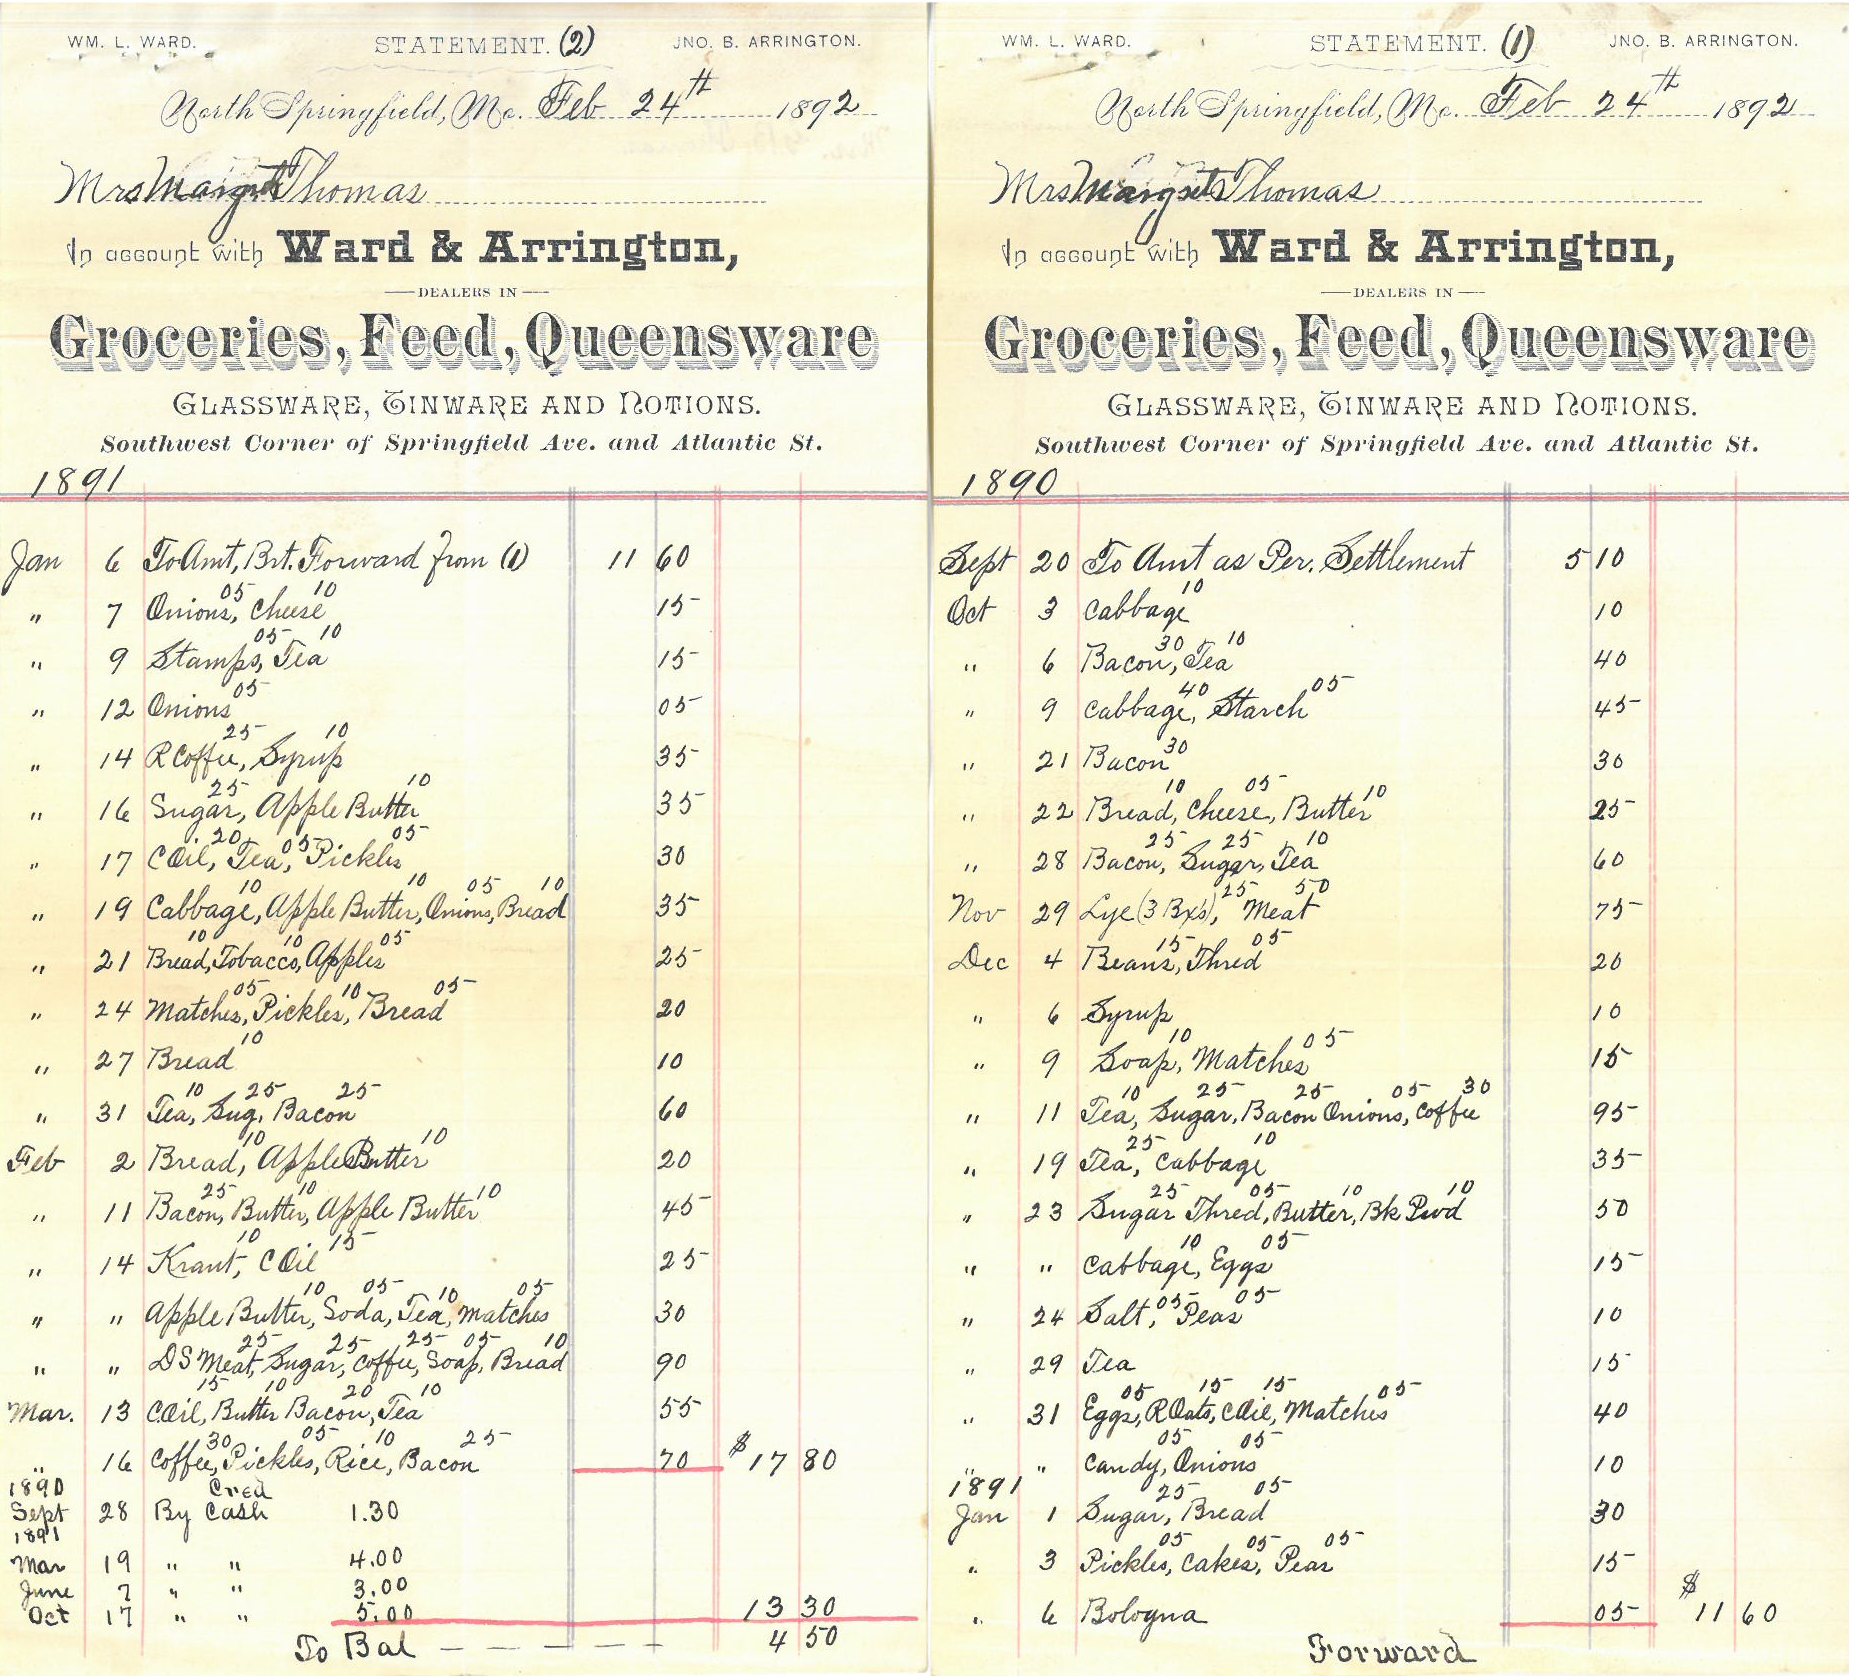 WM. L. WARD. STATEMENT. (2) JNO. B. ARRINGTON.
North Springfield, Mo. Feb 24th 1892
Mrs Margret Thomas
In account with Ward & Arrington,
DEALERS IN
Groceries, Feed, Queensware
GLASSWARE, TINWARE AND NOTIONS.
Southwest Corner of Springfield Ave. and Atlantic St.
1891
Jan 6 To Amt, Brt. Forward from (1) 11 60
05 10
" 7 Onions, Cheese 15
05 10
" 9 Stamps, Tea 15
05
" 12 Onions 05
25 10
" 14 R Coffee, Syrup 35
25 10
" 16 Sugar, Apple Butter 35
20 05 05
" 17 C Oil, Tea, Pickles 30
10 10 05 10
" 19 Cabbage, Apple Butter, Onions, Bread 35
10 10 05
" 21 Bread, Tobacco, Apples 25
05 10 05
" 24 Matches, Pickles, Bread 20
10
" 27 Bread 10
10 25 25
" 31 Tea, Sug, Bacon 60
10 10
Feb 2 Bread, Apple Butter 20
25 10 10
" 11 Bacon, Butter, Apple Butter 45
10 15
" 14 Kraut, C Oil 25
10 05 10 05
" " Apple Butter, Soda, Tea, Matches 30
25 25 25 05 10
" " DS Meat, Sugar, Coffee, Soap, Bread 90
15 10 20 10
Mar. 13 C.Oil, Butter Bacon, Tea 55
30 05 10 25
" 16 Coffee, Pickles, Rice, Bacon 70 $17 80
1890 Cred
Sept 28 By Cash 1.30
1891
Mar 19 " " 4.00
June 7 " " 3.00
Oct 17 " " 5.00 13 30
To Bal 4 50
WM. L. WARD. STATEMENT. (1) JNO. B. ARRINGTON.
North Springfield, Mo. Feb 24th 1892
Mrs Margret Thomas
In account with Ward & Arrington,
DEALERS IN
Groceries, Feed, Queensware
GLASSWARE, TINWARE AND NOTIONS.
Southwest Corner of Springfield Ave. and Atlantic St.
1890
Sept 20 To Amt as Per. Settlement 5 10
10
Oct 3 Cabbage 10
30 10
" 6 Bacon, Tea 40
40 05
" 9 Cabbage, Starch 45
30
" 21 Bacon 30
10 05 10
" 22 Bread, Cheese, Butter 25
25 25 10
" 28 Bacon, Sugar, Tea 60
25 50
Nov 29 Lye (3 Bxs), Meat 75
15 05
Dec 4 Beans, Thred 20
" 6 Syrup 10
10 05
" 9 Soap, Matches 15
10 25 25 05 30
" 11 Tea, Sugar, Bacon Onions, Coffee 95
25 10
" 19 Tea, Cabbage 35
25 05 10 10
" 23 Sugar Thred, Butter, Bk Pwd 50
10 05
" " Cabbage, Eggs 15
05 05
" 24 Salt, Peas 10
" 29 Tea 15
05 15 15 05
" 31 Eggs, R Oats, C Oil, Matches 40
05 05
" " Candy, Onions 10
1891 25 05
Jan 1 Sugar, Bread 30
05 05 05
" 3 Pickles, Cakes, Peas 15
" 6 Bologna 05 $11 60
Forward